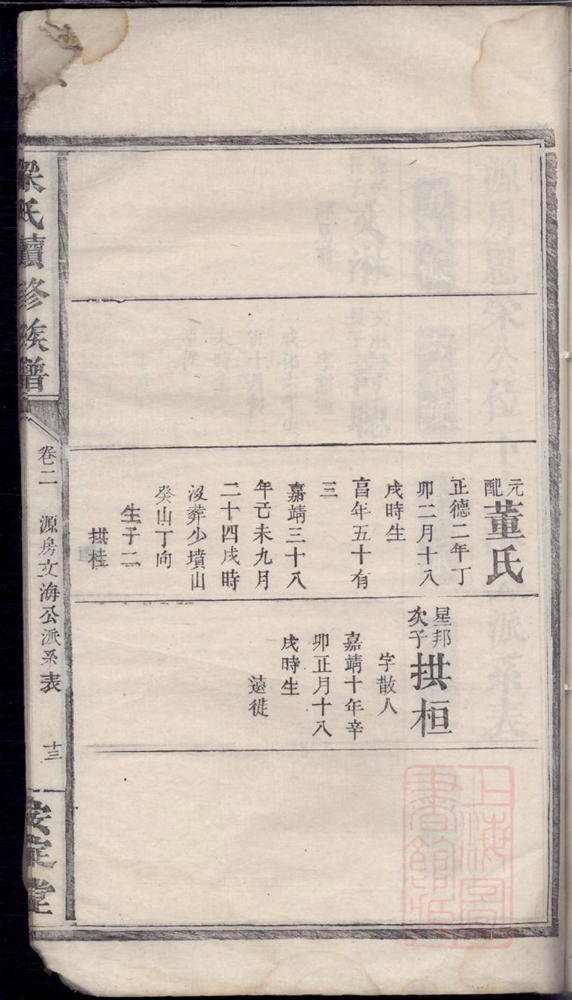 元配董氏
正德二年丁
卯二月十八
戌時生
亯年五十有
三
嘉靖三十八
年己未九月
二十四戌時
沒葬少墳山
癸山丁向
生子二
拱桂
星邦次子拱桓
字散人
嘉靖十年辛
卯正月十八
戌時生
遠徙
梁氏續修族譜
卷二
源房文海公派系表
十三
安定堂
上海圖書館藏